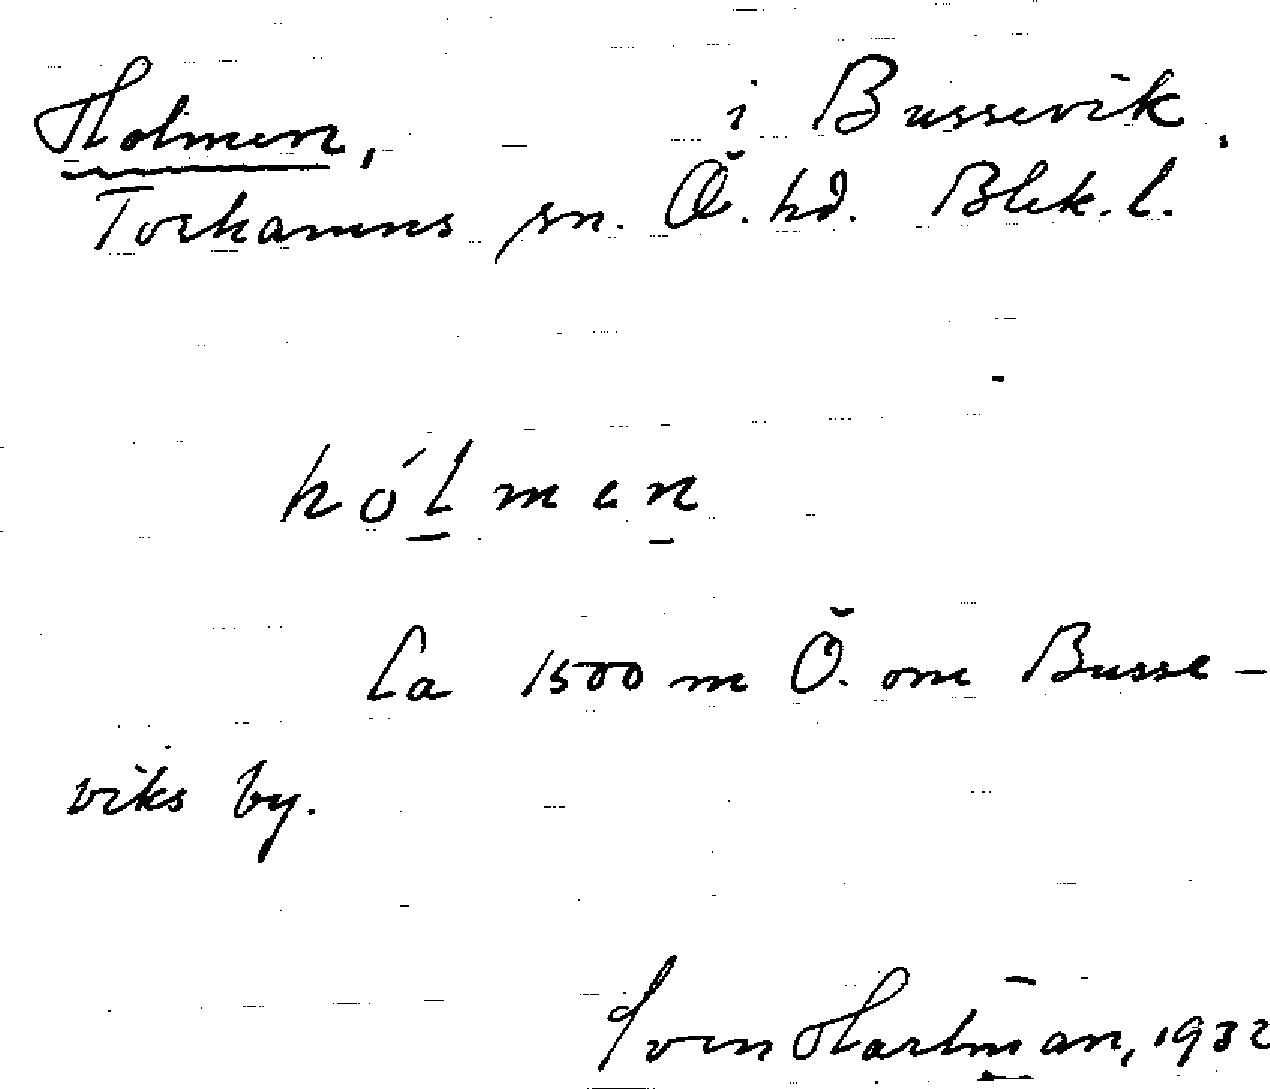 Holmen, i Bussevik,
Torhamns sn. Ö. hd. Blek. l.
hólmen
Ca 1500 m Ö. om Busse-
viks by.
Sven Hartman, 1932